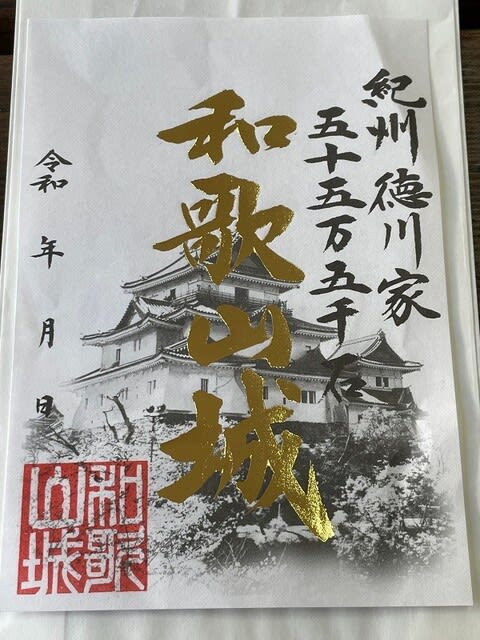 紀州 徳川家
五十五万五千石
和歌山城
令和 年 月 日
和歌
山城